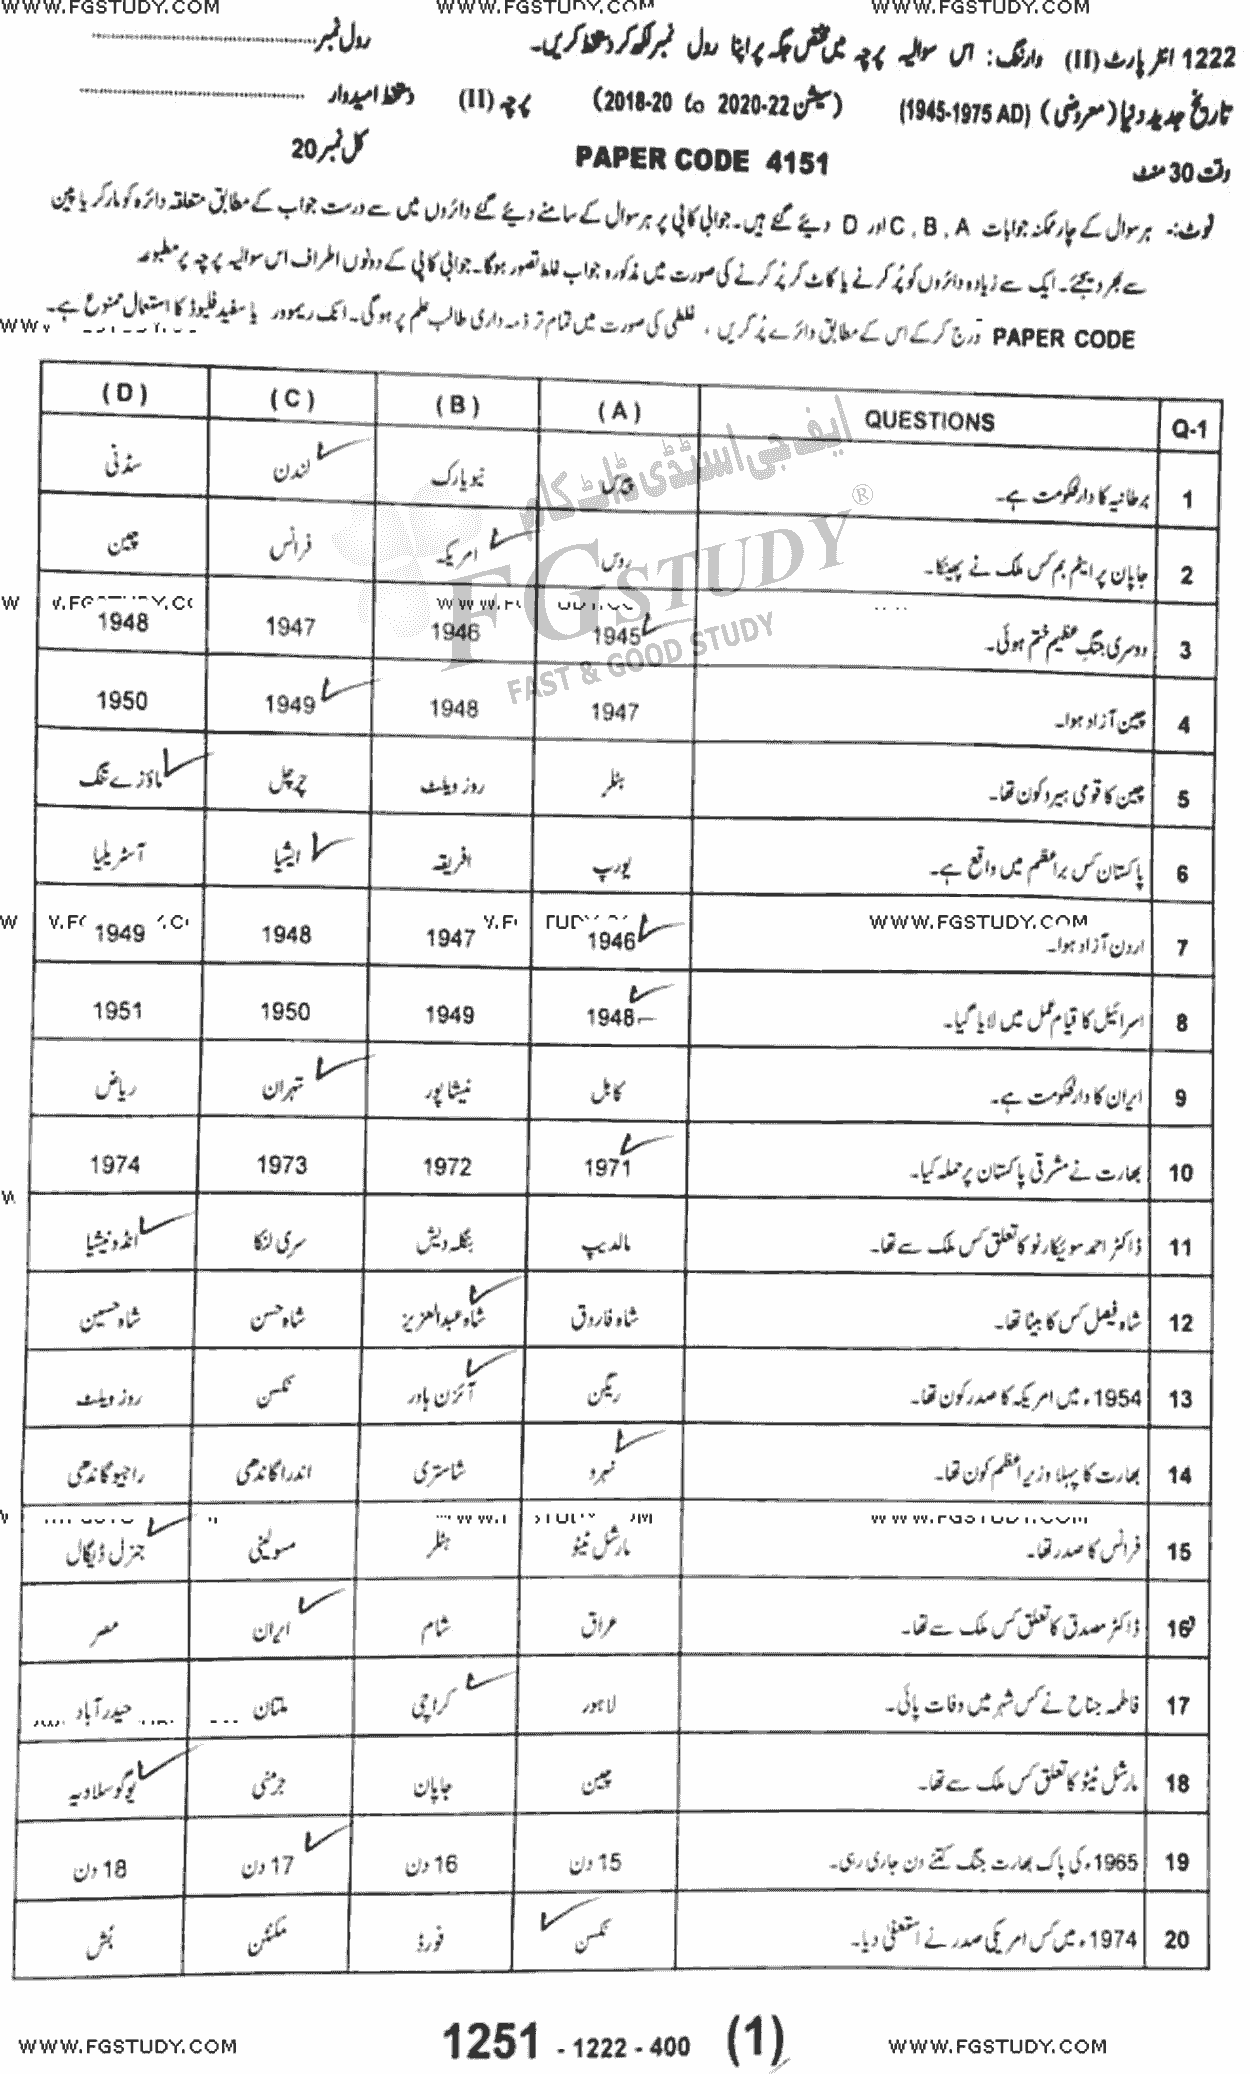 WWW.FGSTUDY.COM WWW.FGSTUDY.COM WWW.FGSTUDY.COM
1222 انٹر پارٹ (II) وارننگ: اس سوالیہ پرچہ میں مختص جگہ پر اپنا رول نمبر لکھ کر دستخط کریں۔ رول نمبر
تاریخ جدید دنیا (معروضی) (1945-1975 AD) (سیشن 2018-20 to 2020-22) پرچہ (II) دستخط امیدوار
وقت 30 منٹ PAPER CODE 4151 کل نمبر 20
نوٹ:- ہر سوال کے چار ممکنہ جوابات A ، B ، C اور D دیئے گئے ہیں۔ جوابی کاپی پر ہر سوال کے سامنے دیئے گئے دائروں میں سے درست جواب کے مطابق متعلقہ دائرہ کو مارکر یا پین
سے بھر دیجئے۔ ایک سے زیادہ دائروں کو پُر کرنے یا کاٹ کر پُر کرنے کی صورت میں مذکورہ جواب غلط تصور ہوگا۔ جوابی کاپی کے دونوں اطراف اس سوالیہ پرچہ پر مطبوعہ
PAPER CODE درج کر کے اس کے مطابق دائرے پُر کریں ، غلطی کی صورت میں تمام تر ذمہ داری طالب علم پر ہوگی۔ انک ریموور یا سفید فلیوڈ کا استعمال ممنوع ہے۔
Q-1 QUESTIONS (A) (B) (C) (D)
1 برطانیہ کا دارلحکومت ہے۔ پیرس نیویارک لندن سڈنی
2 جاپان پر ایٹم بم کس ملک نے پھینکا۔ روس امریکہ فرانس چین
3 دوسری جنگِ عظیم ختم ہوئی۔ 1945 1946 1947 1948
4 چین آزاد ہوا۔ 1947 1948 1949 1950
5 چین کا قومی ہیرو کون تھا۔ ہٹلر روز ویلٹ چرچل ماؤزے تنگ
6 پاکستان کس براعظم میں واقع ہے۔ یورپ افریقہ ایشیا آسٹریلیا
7 اردن آزاد ہوا۔ 1946 1947 1948 1949
8 اسرائیل کا قیام عمل میں لایا گیا۔ 1948 1949 1950 1951
9 ایران کا دارلحکومت ہے۔ کابل نیشاپور تہران ریاض
10 بھارت نے مشرقی پاکستان پر حملہ کیا۔ 1971 1972 1973 1974
11 ڈاکٹر احمد سوئیکارنو کا تعلق کس ملک سے تھا۔ مالدیپ بنگلہ دیش سری لنکا انڈونیشیا
12 شاہ فیصل کس کا بیٹا تھا۔ شاہ فاروق شاہ عبدالعزیز شاہ حسن شاہ حسین
13 1954ء میں امریکہ کا صدر کون تھا۔ ریگن آئزن ہاور نکسن روز ویلٹ
14 بھارت کا پہلا وزیر اعظم کون تھا۔ نہرو شاستری اندرا گاندھی راجیو گاندھی
15 فرانس کا صدر تھا۔ مارشل ٹیٹو ہٹلر مسولینی جنرل ڈیگال
16 ڈاکٹر مصدق کا تعلق کس ملک سے تھا۔ عراق شام ایران مصر
17 فاطمہ جناح نے کس شہر میں وفات پائی۔ لاہور کراچی ملتان حیدرآباد
18 مارشل ٹیٹو کا تعلق کس ملک سے تھا۔ چین جاپان جرمنی یوگوسلاویہ
19 1965ء کی پاک بھارت جنگ کتنے دن جاری رہی۔ 15 دن 16 دن 17 دن 18 دن
20 1974ء میں کس امریکی صدر نے استعفٰی دیا۔ نکسن فورڈ کلنٹن بُش
ایف جی اسٹڈی ڈاٹ کام
FGSTUDY ®
FAST & GOOD STUDY
WWW.FGSTUDY.COM
1251 - 1222 - 400 (1)
WWW.FGSTUDY.COM WWW.FGSTUDY.COM